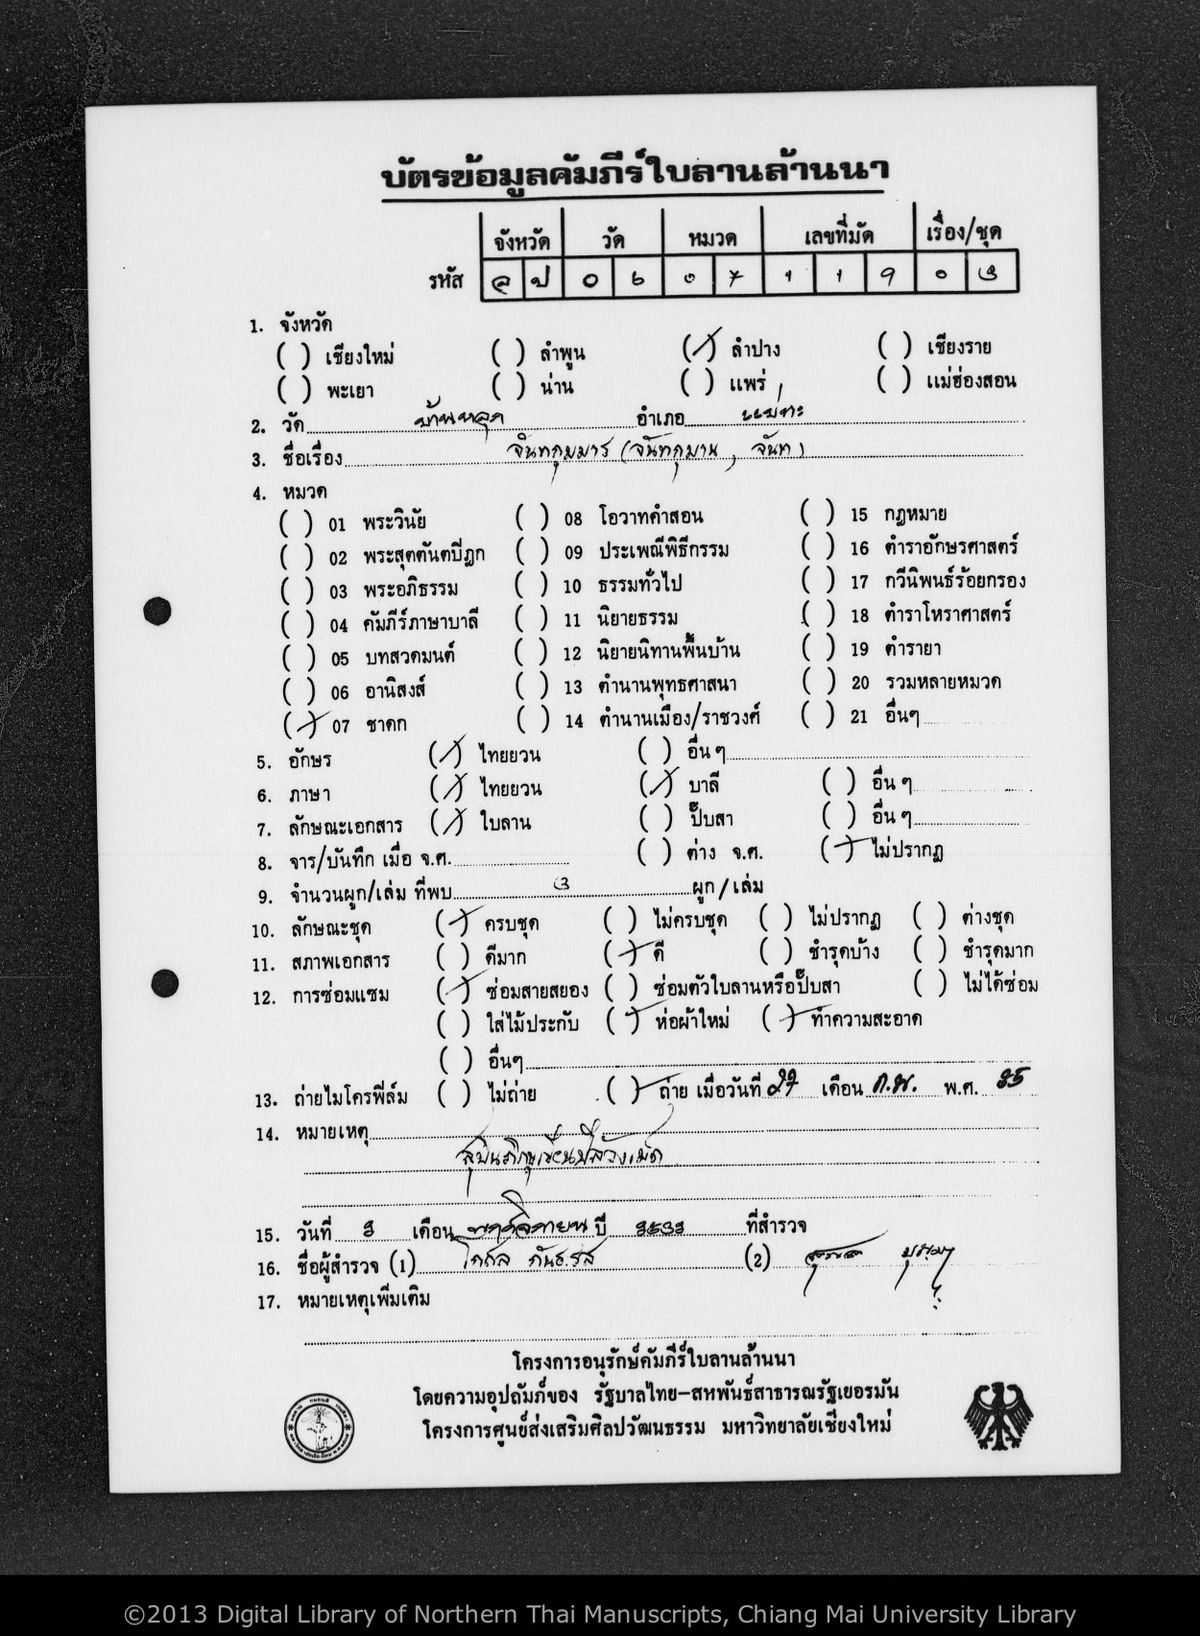 บัตรข้อมูลคัมภีร์ใบลานล้านนา
จังหวัด วัด หมวด เลขที่มัด เรื่อง/ชุด
รหัส ล ป 0 6 0 7 1 1 9 0 3
1. จังหวัด
( ) เชียงใหม่ ( ) ลำพูน (/) ลำปาง ( ) เชียงราย
( ) พะเยา ( ) น่าน ( ) แพร่ ( ) แม่ฮ่องสอน
2. วัด บ้านหลุก อำเภอ แม่ทะ
3. ชื่อเรื่อง จันทกุมมาร (จันทกุมาน, จันทา)
4. หมวด
( ) 01 พระวินัย ( ) 08 โอวาทคำสอน ( ) 15 กฎหมาย
( ) 02 พระสุตตันตปิฎก ( ) 09 ประเพณีพิธีกรรม ( ) 16 ตำราอักษรศาสตร์
( ) 03 พระอภิธรรม ( ) 10 ธรรมทั่วไป ( ) 17 กวีนิพนธ์ร้อยกรอง
( ) 04 คัมภีร์ภาษาบาลี ( ) 11 นิยายธรรม ( ) 18 ตำราโหราศาสตร์
( ) 05 บทสวดมนต์ ( ) 12 นิยายนิทานพื้นบ้าน ( ) 19 ตำรายา
( ) 06 อานิสงส์ ( ) 13 ตำนานพุทธศาสนา ( ) 20 รวมหลายหมวด
(/) 07 ชาดก ( ) 14 ตำนานเมือง/ราชวงศ์ ( ) 21 อื่นๆ
5. อักษร (/) ไทยยวน ( ) อื่น ๆ
6. ภาษา (/) ไทยยวน (/) บาลี ( ) อื่น ๆ
7. ลักษณะเอกสาร (/) ใบลาน ( ) ปั๊บสา ( ) อื่น ๆ
8. จาร/บันทึก เมื่อ จ.ศ. ( ) ต่าง จ.ศ. (/) ไม่ปรากฏ
9. จำนวนผูก/เล่ม ที่พบ 3 ผูก/เล่ม
10. ลักษณะชุด (/) ครบชุด ( ) ไม่ครบชุด ( ) ไม่ปรากฏ ( ) ต่างชุด
11. สภาพเอกสาร ( ) ดีมาก (/) ดี ( ) ชำรุดบ้าง ( ) ชำรุดมาก
12. การซ่อมแซม (/) ซ่อมสายสยอง ( ) ซ่อมตัวใบลานหรือปั๊บสา ( ) ไม่ได้ซ่อม
( ) ใส่ไม้ประกับ (/) ห่อผ้าใหม่ (/) ทำความสะอาด
( ) อื่นๆ
13. ถ่ายไมโครฟิล์ม ( ) ไม่ถ่าย (/) ถ่าย เมื่อวันที่ 27 เดือน ก.พ. พ.ศ. 35
14. หมายเหตุ
15. วันที่ 3 เดือน พฤศจิกายน ปี 2533 ที่สำรวจ
16. ชื่อผู้สำรวจ (1) (2)
17. หมายเหตุเพิ่มเติม
โครงการอนุรักษ์คัมภีร์ใบลานล้านนา
โดยความอุปถัมภ์ของ รัฐบาลไทย-สหพันธ์สาธารณรัฐเยอรมัน
โครงการศูนย์ส่งเสริมศิลปวัฒนธรรม มหาวิทยาลัยเชียงใหม่
©2013 Digital Library of Northern Thai Manuscripts, Chiang Mai University Library